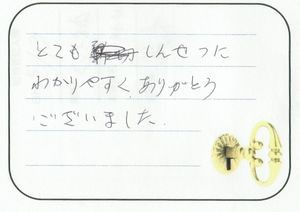 とても しんせつに
わかりやすく、ありがとう
ございました。